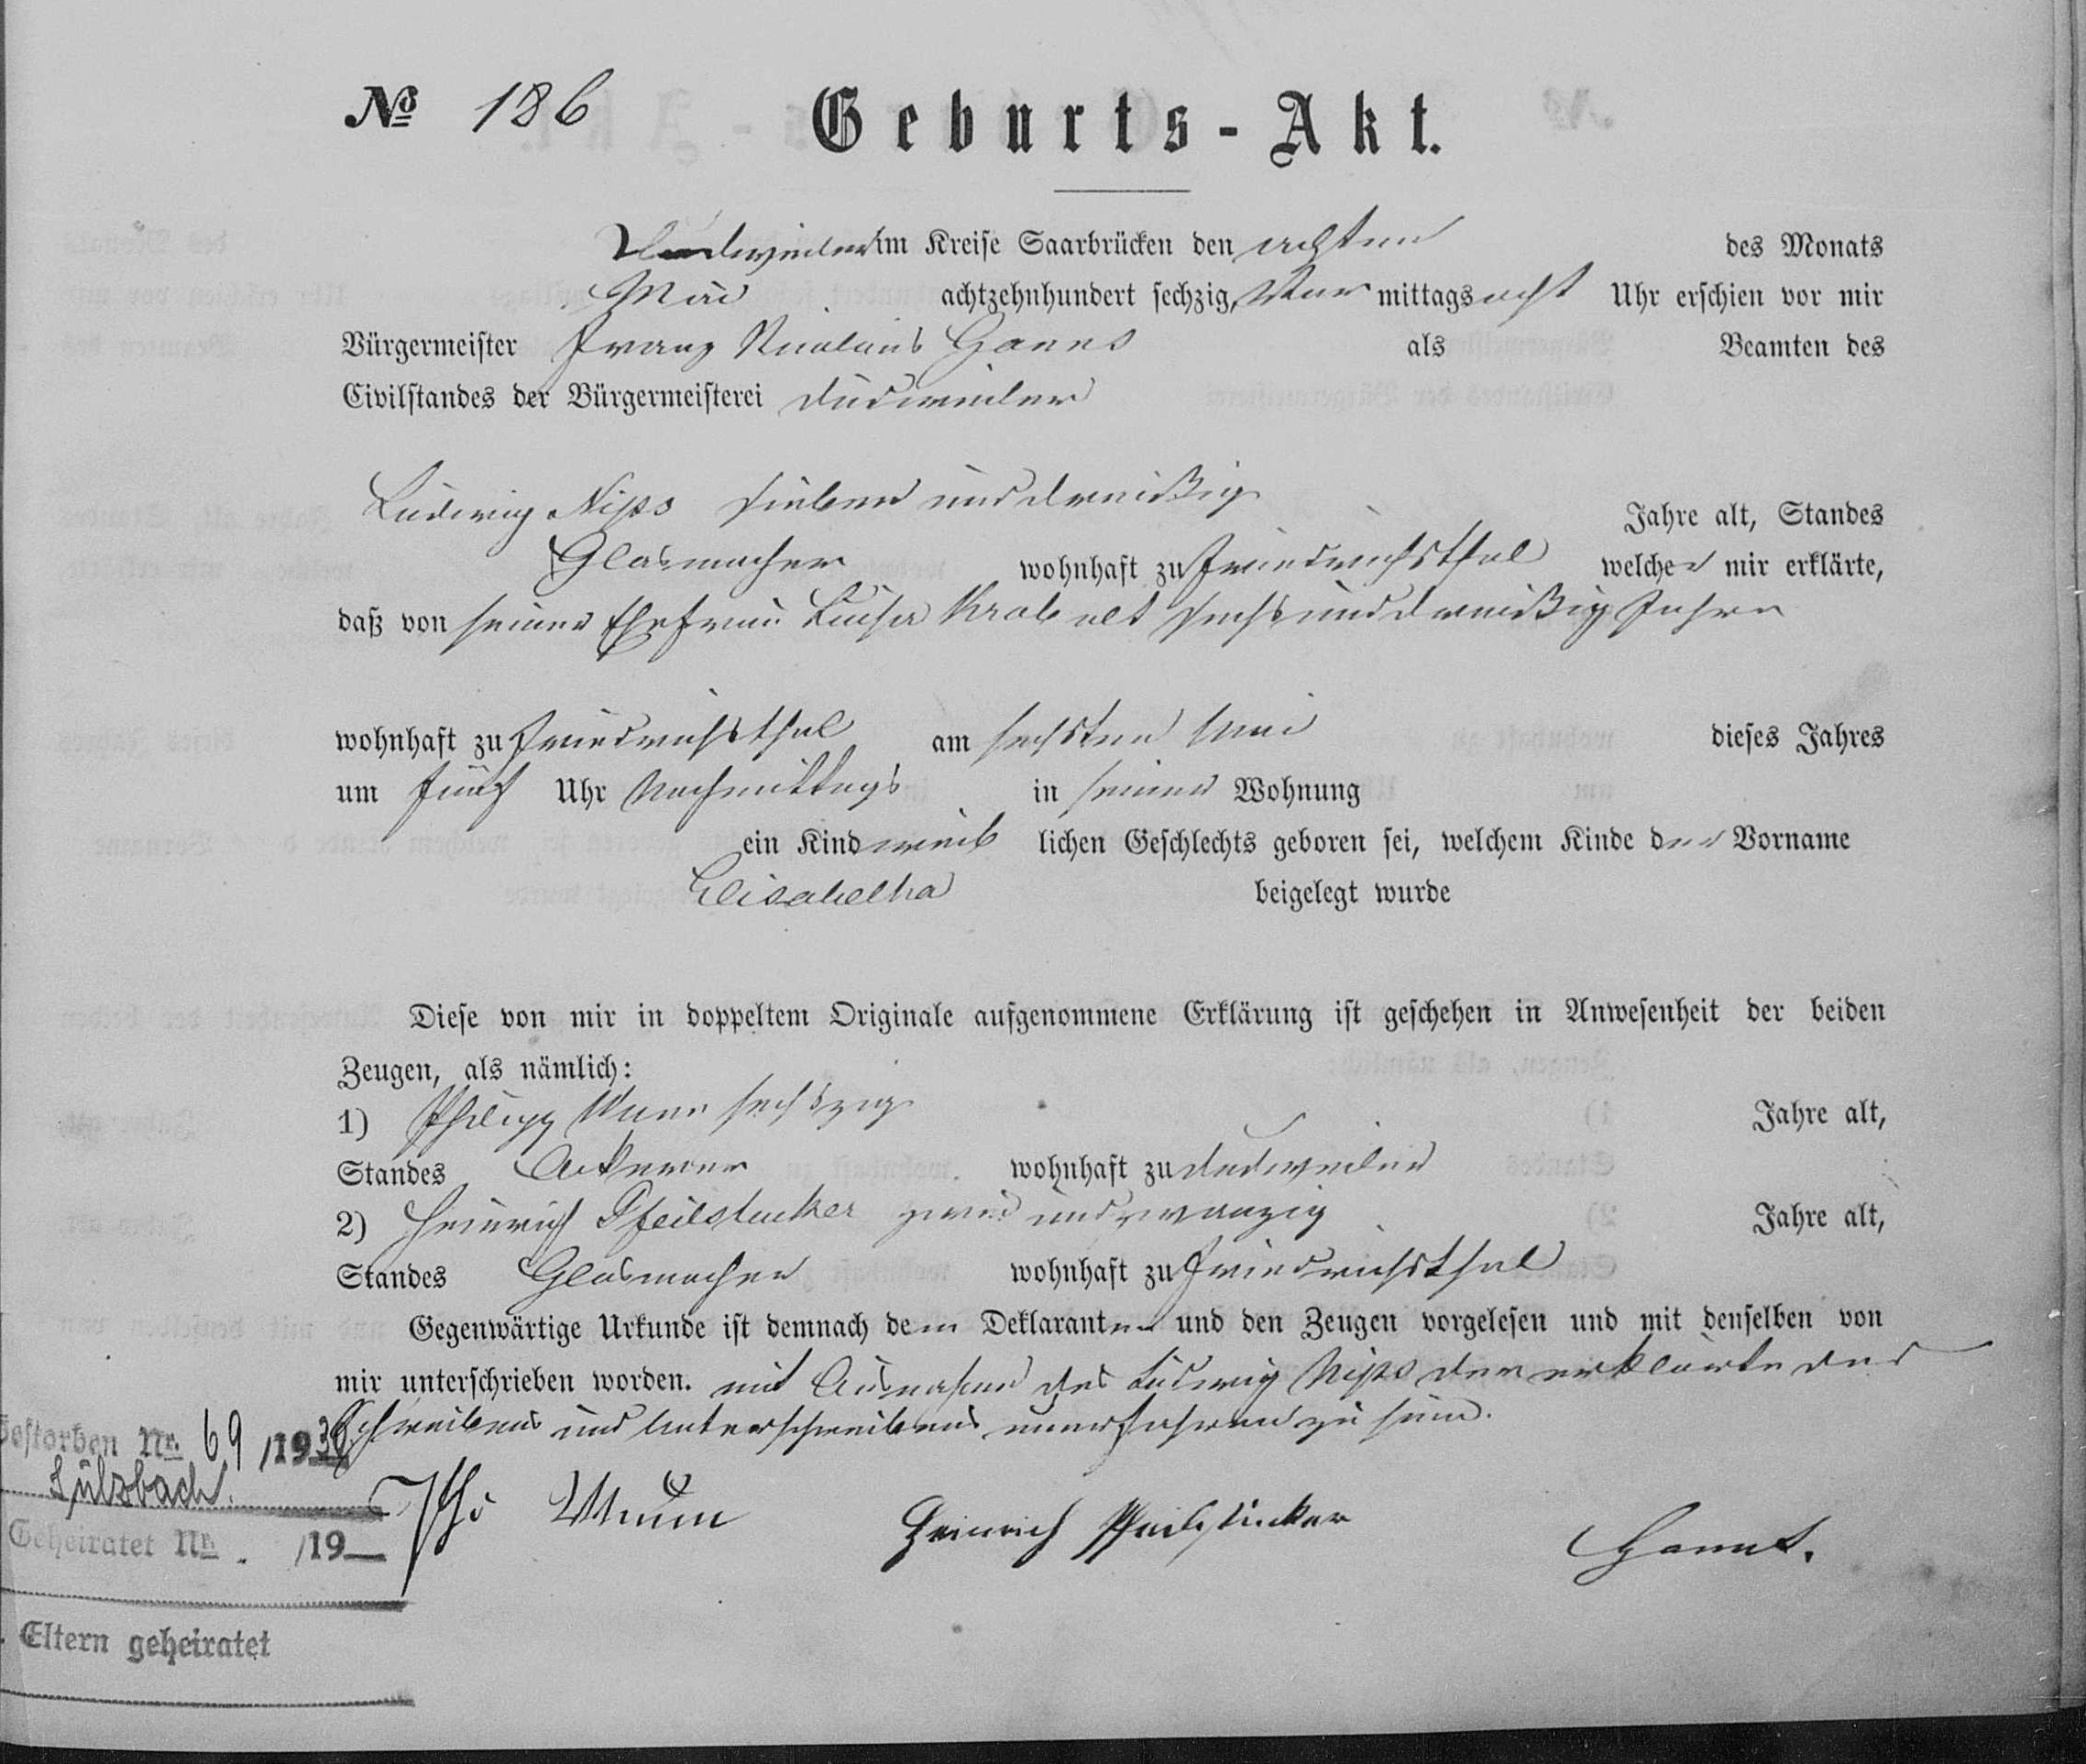 № 186 Geburts-Akt.
Dudweiler im Kreise Saarbrücken den achten des Monats
Mai achtzehnhundert sechzig, Vor mittags acht Uhr erschien vor mir
Bürgermeister Franz Nicolaus Hanns als Beamten des
Civilstandes der Bürgermeisterei Dudweiler
Ludwig Nips sieben und dreißig Jahre alt, Standes
Glasmacher wohnhaft zu Friedrichsthal welcher mir erklärte,
daß von seiner Ehefrau Luisa Krob alt sechs und dreißig Jahre
wohnhaft zu Friedrichsthal am sechsten Mai dieses Jahres
um fünf Uhr Nachmittags in seiner Wohnung
ein Kind weib lichen Geschlechts geboren sei, welchem Kinde der Vorname
Elisabetha beigelegt wurde
Diese von mir in doppeltem Originale aufgenommene Erklärung ist geschehen in Anwesenheit der beiden
Zeugen, als nämlich:
1) Philipp sechszig Jahre alt,
Standes Ackerer wohnhaft zu Dudweiler
2) Heinrich Pfeilstücker zwei und zwanzig Jahre alt,
Standes Glasmacher wohnhaft zu Friedrichsthal
Gegenwärtige Urkunde ist demnach dem Deklaranten und den Zeugen vorgelesen und mit denselben von
mir unterschrieben worden. mit Ausnahme des Ludwig Nips der erklärte des
Schreibens und Unterschreibens unerfahren zu sein.
Gestorben Nr. 69 /1930
Sulzbach
Phi Heinrich Pfeilstücker Hanns.
Geheiratet Nr. /19—
Eltern geheiratet